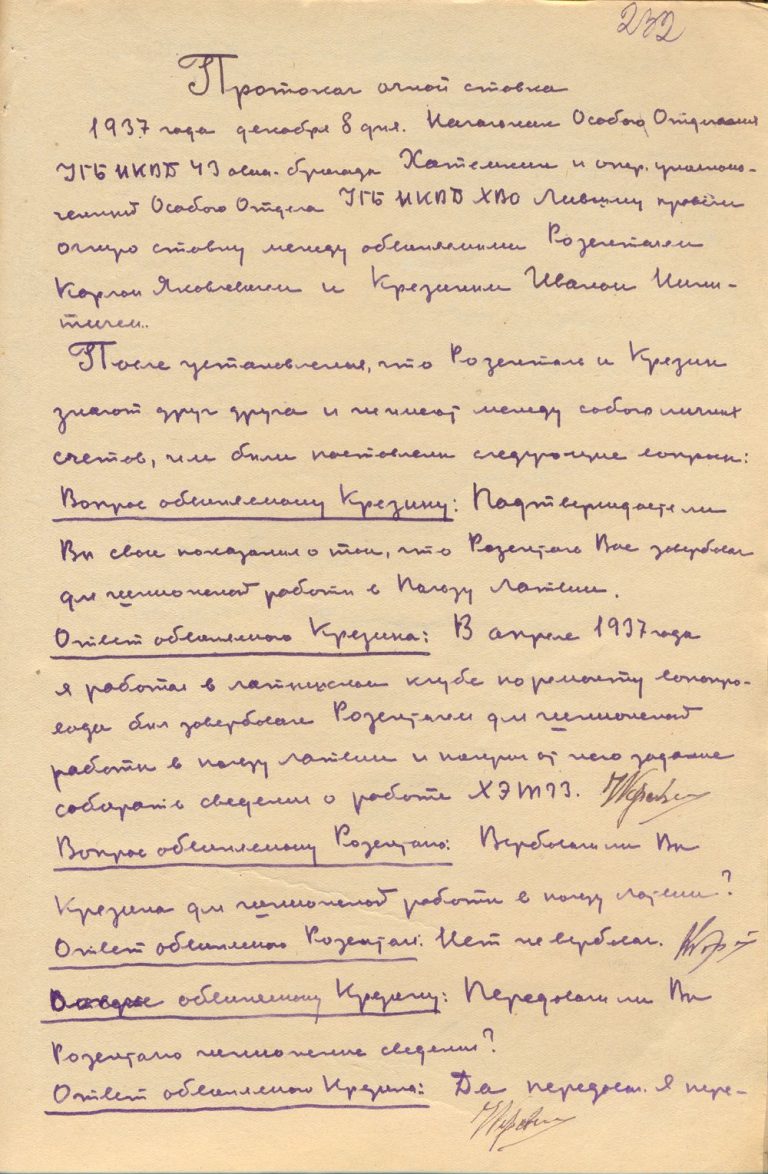 232
Протокол очной ставки
1937 года декабря 8 дня. Начальник Особого Отделения
УГБ НКВД 43 авиа-бригады и опер. уполномо-
ченный Особого Отдела УГБ НКВД ХВО провели
очную ставку между обвиняемыми Розенталем
Карлом Яковлевичем и Крезиным Иваном Ники-
тичем..
После установления, что Розенталь и Крезин
знают друг друга и не имеют между собою личных
счетов, им были поставлены следующие вопросы:
Вопрос обвиняемому Крезину: Подтверждаете ли
Вы свои показания о том, что Розенталь Вас завербовал
для шпионской работы в пользу Латвии.
Ответ обвиняемого Крезина: В апреле 1937 года
я работая в латышском клубе по ремонту водопро-
вода был завербован Розенталем для шпионской
работы в пользу Латвии и получил от него задание
собирать сведения о работе ХЭТЗ.
Вопрос обвиняемому Розенталю: Вербовали ли Вы
Крезина для шпионской работы в пользу Латвии?
Ответ обвиняемого Розенталя: Нет не вербовал.
Вопрос обвиняемому Крезину: Передавали ли Вы
Розенталю шпионские сведения?
Ответ обвиняемого Крезина: Да передавал. Я пере-